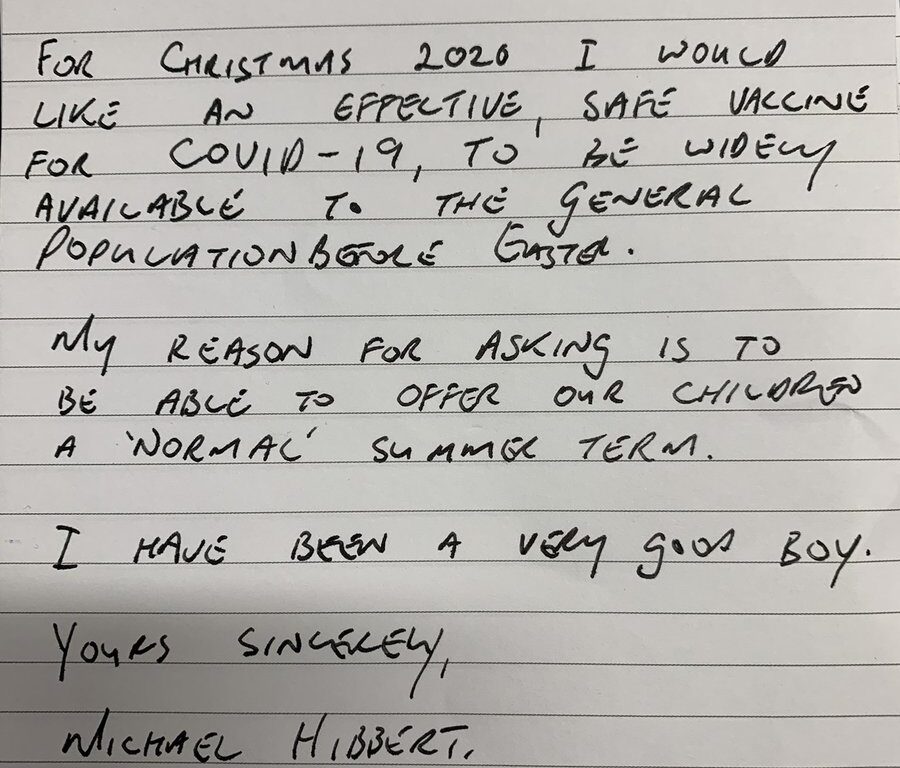 FOR CHRISTMAS 2020 I WOULD
LIKE AN EFFECTIVE, SAFE VACCINE
FOR COVID-19, TO BE WIDELY
AVAILABLE TO THE GENERAL
POPULATION BEFORE EASTER.
My REASON FOR ASKING IS TO
BE ABLE TO OFFER OUR CHILDREN
A 'NORMAL' SUMMER TERM.
I HAVE BEEN A VERY GOOD BOY.
YOURS SINCERELY,
MICHAEL HIBBERT.